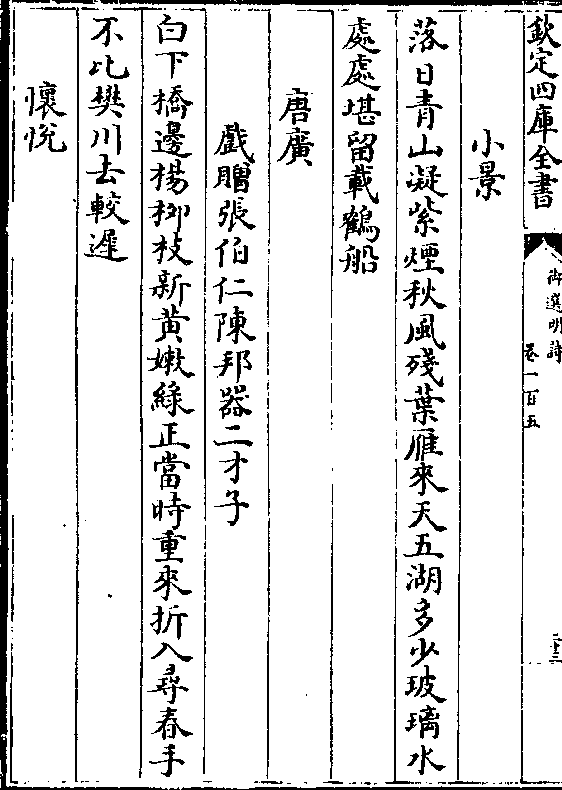 欽定四庫全書
御選明詩
卷一百五
二十二
小景
落日青山凝紫煙秋風殘葉雁來天五湖多少玻璃水
處處堪留載鶴船
唐廣
戲贈張伯仁陳邦器二才子
白下橋邊楊柳枝新黃嫩綠正當時重來折入尋春手
不比樊川去較遲
懷悅